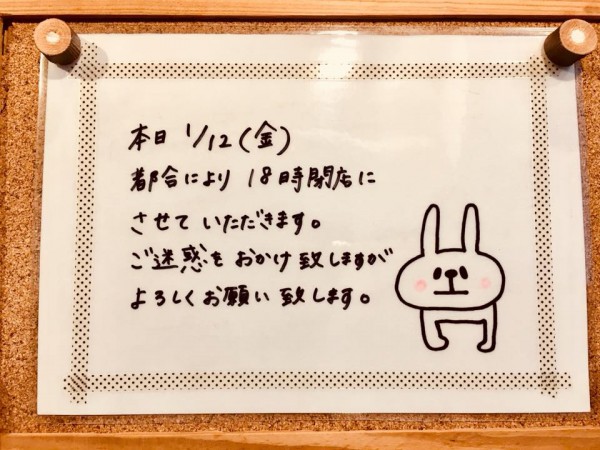 本日 1/12(金)
都合により 18時閉店に
させていただきます。
ご迷惑をおかけ致しますが
よろしくお願い致します。